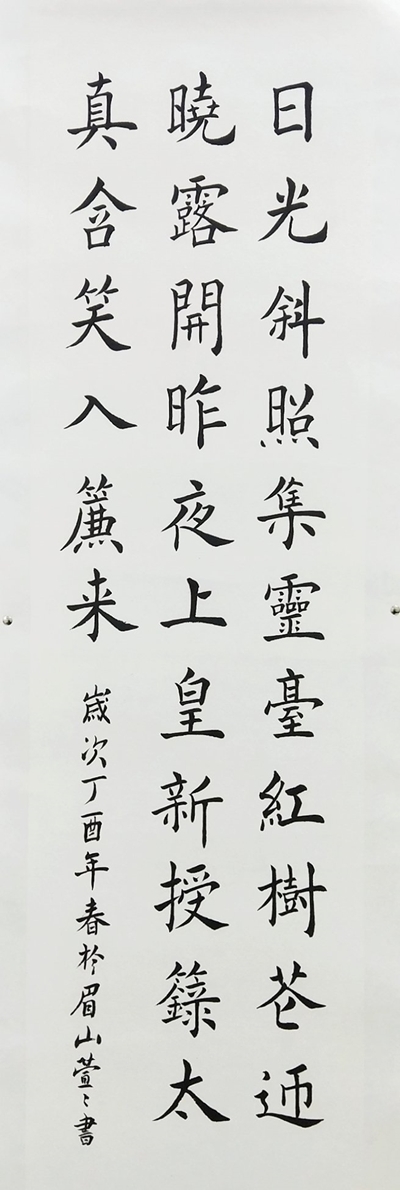 日光斜照集靈臺紅樹花迊
曉露開昨夜上皇新授籙太
真含笑入簾来
歲次丁酉年春於眉山萱〻書